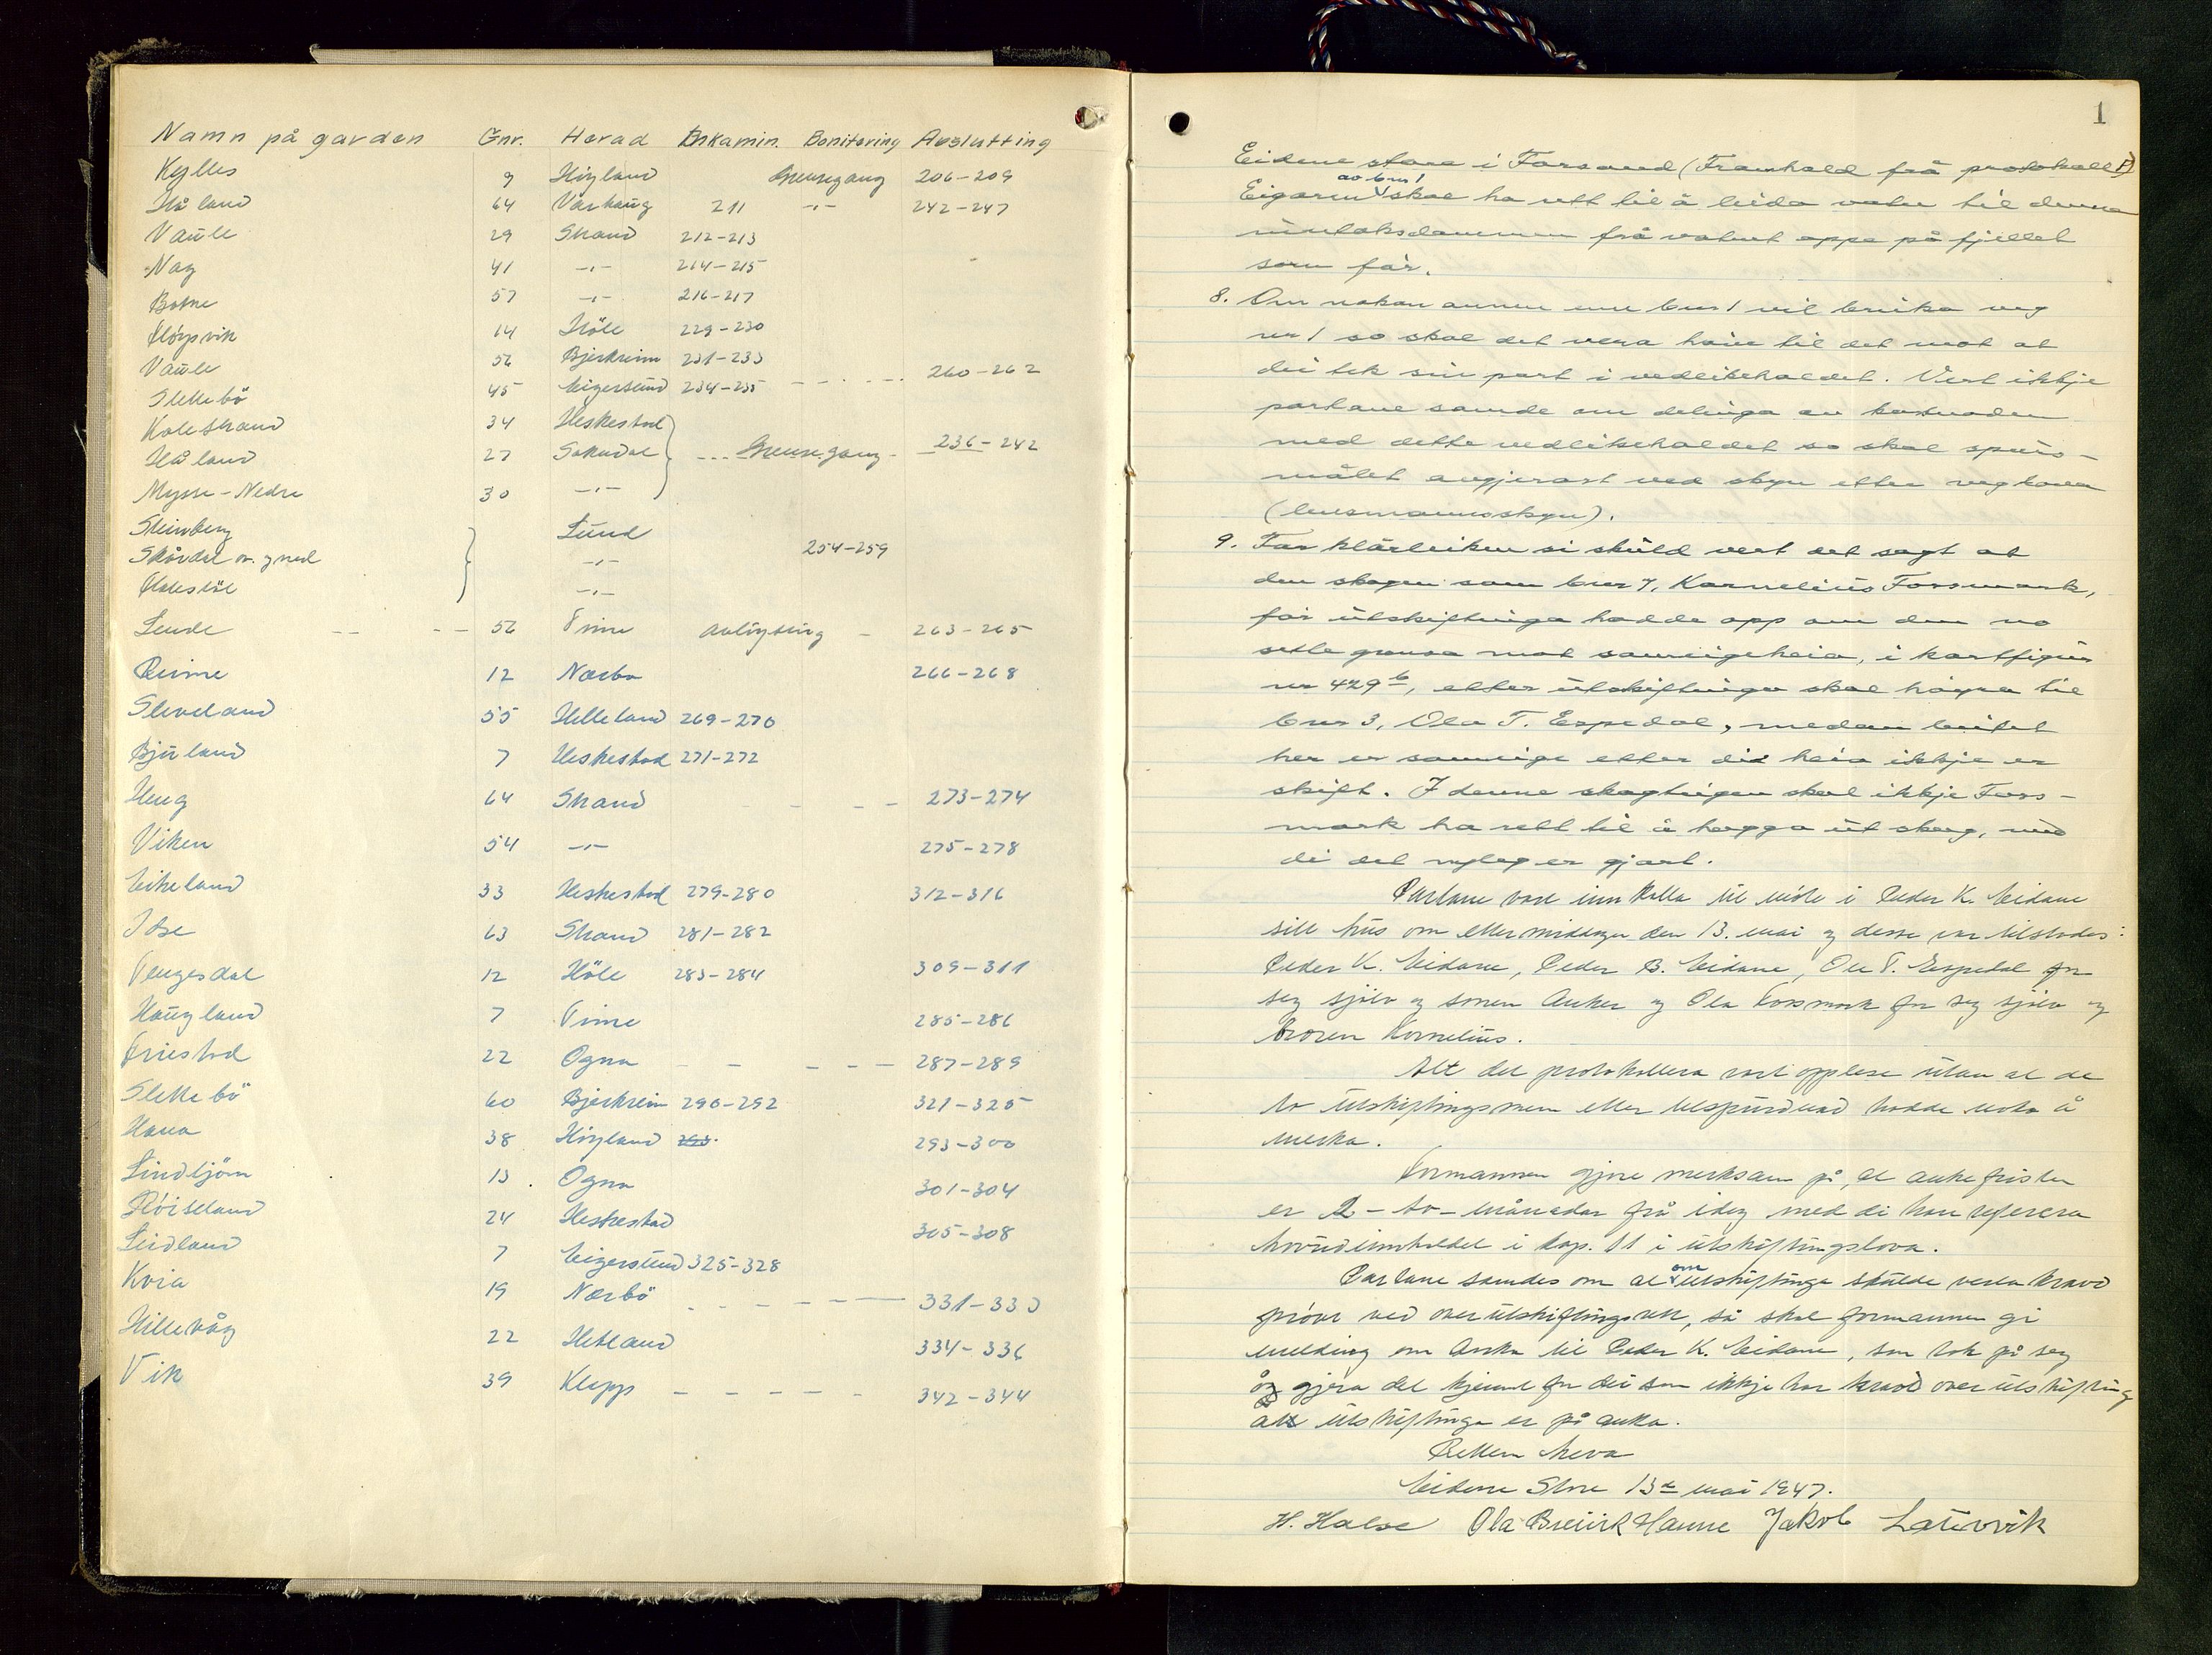 Namn på garden Gnr. Herad Enkamin. Bonitering Avslutting
Kylles 9 Höyland Grensegang 206-209
Håland 64 Varhaug 211 -"- 242-247
Vaule 29 Strand 212-213
Nag 41 -"- 214-215
Botne 57 -"- 216-217
Fløysvik 14 Höle 229-230
Vaule 56 Bjerkreim 231-233
Slettebö 45 Eigersund 234-235 - - - - - 260-262
Kolestrand 34 Heskestad
Håland 27 Sokndal - - - Grensegang - 236-242
Mysse-Nedre 30 -"-
Steinberg Lund
Skårdal ø. og ned -"- 254-259
-"-
Lende - - - - 56 Time Avløysing - 263-265
Reime 12 Nærbø 266-268
Sleveland 55 Helleland 269-270
Bjuland 7 Heskestad 271-272
Heng 64 Strand - - - - 273-274
Viken 54 -"- 275-278
Eikeland 33 Heskestad 279-280 312-316
Idse 63 Strand 281-282
Tengesdal 12 Höle 283-284 309-311
Haugland 7 Time 285-286
Fuestad 22 Ogna - - - - - 287-289
Slettebö 60 Bjerkreim 290-292 321-325
Hana 38 Höyland 293 293-300
Lindtjörn 13 Ogna 301-304
Röiseland 24 Heskestad 305-308
Leidland 7 Eigersund 325-328
Kvia 19 Nærbö - - - - - 331-333
Hillevåg 22 Hetland 334-336
Vik 39 Klepp - - - - - 342-344
1
Eidane store i Forsand (Framhald frå protokoll P)
Eigaren av bnr 1 skal ha rett til å leida vatn til denne
inntaksdammen frå vatnet oppe på fjellet
som før.
8. Om nokon annan enn bnr 1 vil bruka veg
nr 1 so skal det vera høve til det mot at
dei tek sin part i vedlikehaldet. Vert ikkje
partane samde om delinga av kostnaden
med dette vedlikehaldet so skal spurs-
målet avgjerast ved skyn etter veglova
(lensmannsskyn).
9. For klårleiken si skuld vert det sagt at
den skogen som bnr 7, Kornelius Fossmark,
før utskiftinga hadde opp om den no
sette grensa mot sameigeheia, i kartfigur
nr 429 b, etter utskiftinga skal høyra til
bnr 3, Ola T. Espedal, medan beitet
her er sameige etter di heia ikkje er
skift. I denne skogteigen skal ikkje Foss-
mark ha rett til å hogga ut skog, med
di det nyleg er gjort.
Partane vart innkalla til møte i Peder K. Eidane
sitt hus om ettermiddagen den 13. mai og desse var tilstades:
Peder K. Eidane, Peder B. Eidane, Ole T. Espedal for
seg sjølv og sonen Anker og Ola Fossmark for seg sjølv og
broren Kornelius.
Alt det protokollera vart opplese utan at de
to utskiftingsmenn eller tilspurdnad hadde noko å
merka.
Formannen gjore merksam på, at ankefristen
er 2 - to - månadar frå idag med di han referera
hovudinnhaldet i kap. 11 i utskiftingslova.
Partane samdes om at om utskiftinga skulde verta kravd
prøvt ved overutskiftingsrett, så skal formannen gi
melding om anka til Peder K. Eidane, som tok på seg
å gjera det kjennt for dei som ikkje har kravd overutskifting
at utskiftinga er på anka.
Retten heva
Eidane Store 13de mai 1947.
H. Halse Ola Breivik Hanne Jakob Latervik